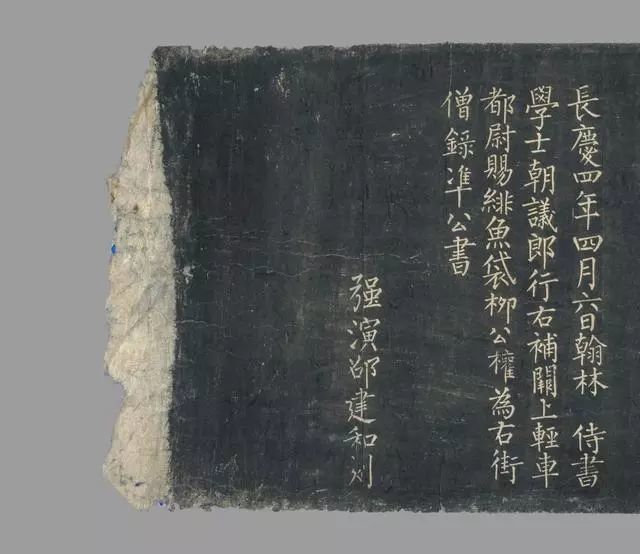 長慶四年四月六日翰林 侍書
學士朝議郎行右補闕上輕車
都尉賜緋魚袋柳公權為右街
僧錄準公書
强演邵建和刻